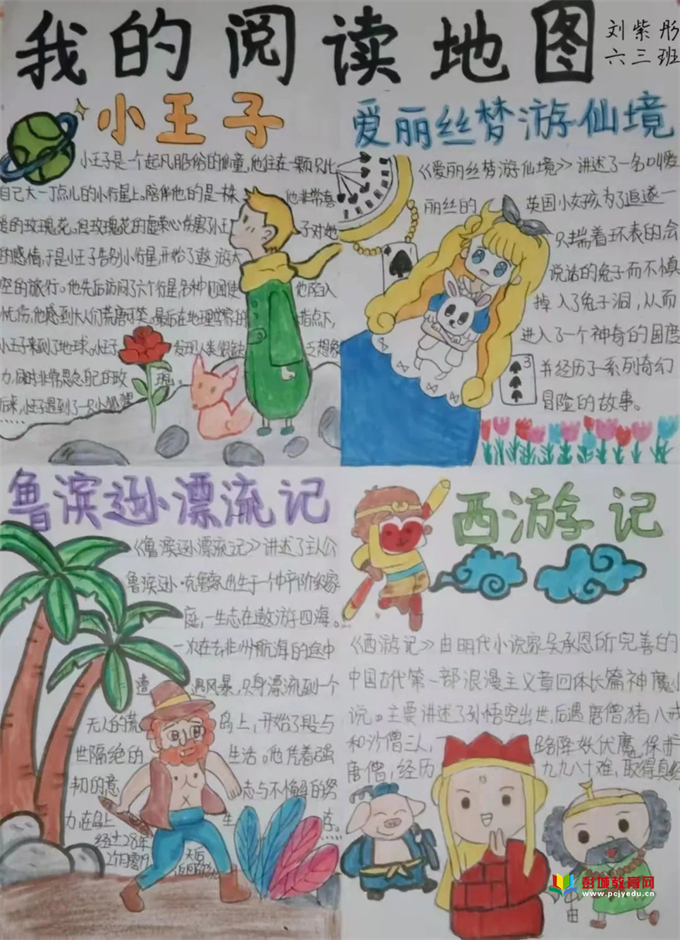 我的阅读地图
刘紫彤
六三班
小王子
小王子是一个超凡脱俗的仙童，他住在一颗只比
自己大一丁点儿的小行星上。陪伴他的是一株 他非常喜
爱的玫瑰花。但玫瑰花的虚荣心伤害了小王 子对她
的感情，于是小王子告别小行星开始了遨 游太
空的旅行。他先后访问了六个行星，各种 他陷入
忧伤，他感到大人们荒唐可笑。最后在地理学家的 指点下，
小王子来到了地球。小王子 发现人类
力，
后来，小王子遇到了一只小狐狸
爱丽丝梦游仙境
《爱丽丝梦游仙境》讲述了一名叫爱
丽丝的 英国小女孩为了追逐一
只揣着怀表的会
说话的兔子而不慎
掉入了兔子洞，从而
进入了一个神奇的国度
并经历了一系列奇幻
冒险的故事。
3
鲁滨逊漂流记
《鲁滨逊漂流记》讲述了主人公
鲁滨逊·克鲁索出生于一个中产阶级家
庭，一生志在遨游四海。
一次在去非州航海的途中
遭 遇风暴，只身漂流到一个
无人的荒 岛上，开始了段与
世隔绝的 生活。他凭着强
韧的意 志与不懈的努
力在岛上 生 存。
经过28年
2个月零19 天后
西游记
《西游记》由明代小说家吴承恩所完善的
中国古代第一部浪漫主义章回体长篇神魔小
说。主要讲述了孙悟空出世，后遇唐僧猪八戒
和沙僧三人， 一路降妖伏魔，保护
唐僧，经历 九九八十难，取得真经
彭城教育网
www.pcjyedu.cn